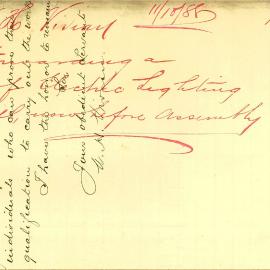 11/10/88
Concerning a
Electric Lighting
now before Assembly
individuals who can prove their
qualification to carry out the work
I have the honor to remain
Sir
Your obedient servant